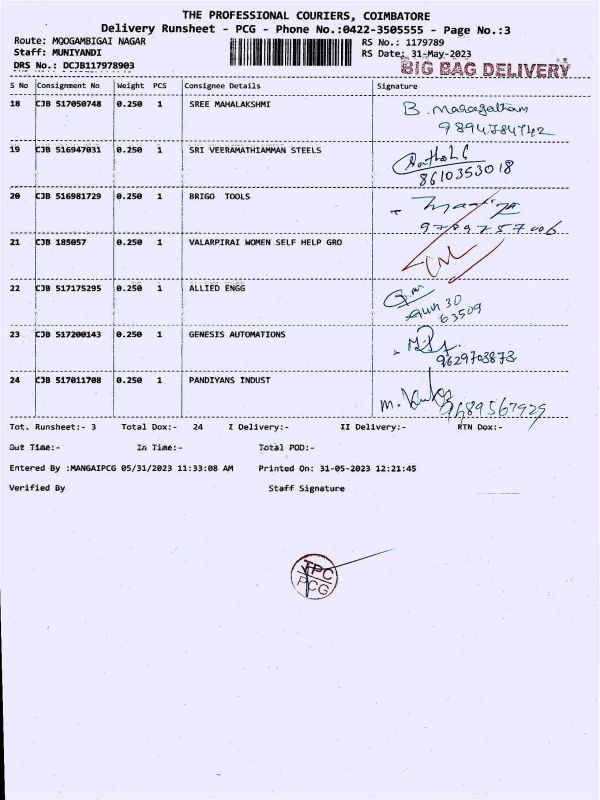 THE PROFESSIONAL COURIERS, COIMBATORE
Delivery Runsheet - PCG - Phone No.:0422-3505555 - Page No.:3
Route: MOOGAMBIGAI NAGAR RS No.: 1179789
Staff: MUNIYANDI RS Date: 31-May-2023
DRS No.: DCJB117978903 BIG BAG DELIVERY
S No Consignment No Weight PCS Consignee Details Signature
18 CJB 517050748 0.250 1 SREE MAHALAKSHMI
9894784742
19 CJB 516947031 0.250 1 SRI VEERAMATHIAMMAN STEELS
8610353018
20 CJB 516981729 0.250 1 BRIGO TOOLS
9789757006
21 CJB 185057 0.250 1 VALARPIRAI WOMEN SELF HELP GRO
22 CJB 517175295 0.250 1 ALLIED ENGG
63509
23 CJB 517200143 0.250 1 GENESIS AUTOMATIONS
9629703873
24 CJB 517011708 0.250 1 PANDIYANS INDUST
9489567929
Tot. Runsheet:- 3 Total Dox:- 24 I Delivery:- II Delivery:- RTN Dox:-
Out Time:- In Time:- Total POD:-
Entered By :MANGAIPCG 05/31/2023 11:33:08 AM Printed On: 31-05-2023 12:21:45
Verified By Staff Signature
TPC
PCG